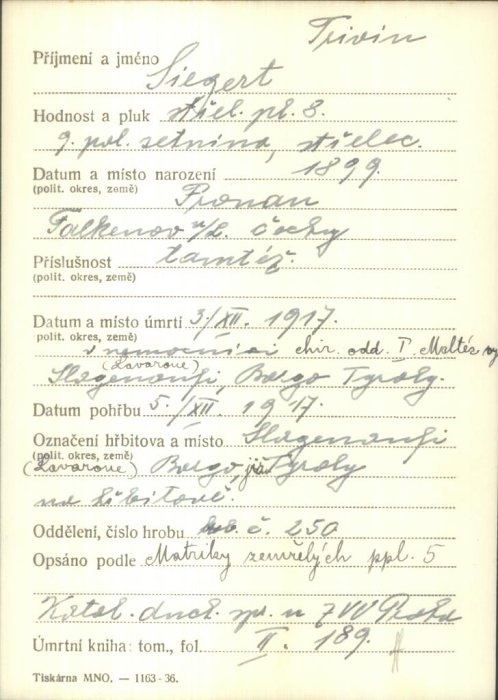 Trivin
Příjmení a jméno Siegert
Hodnost a pluk střel. pl. 8.
9. pol. setnina, střelec.
Datum a místo narození 1899.
(polit. okres, země) Pronau
Falkenov n/L. Čechy
Příslušnost tamtéž.
(polit. okres, země)
Datum a místo úmrtí 3./XII. 1917.
polit. okres, země)
v nemocnici chir. odd. I. Maltéz
(Lavarone)
Slagenaufi, Borgo Tyroly.
Datum pohřbu 5./XII. 1917.
Označení hřbitova a místo Slagenaufi
(polit. okres, země)
(Lavarone) Borgo, již. Tyroly
na hřbitově.
Oddělení, číslo hrobu hrob. č. 250
Opsáno podle Matriky zemřelých ppl. 5
Katol. duch. spr. u 7 VV Praha
Úmrtní kniha: tom., fol. II. 189.
Tiskárna MNO. — 1163-36.